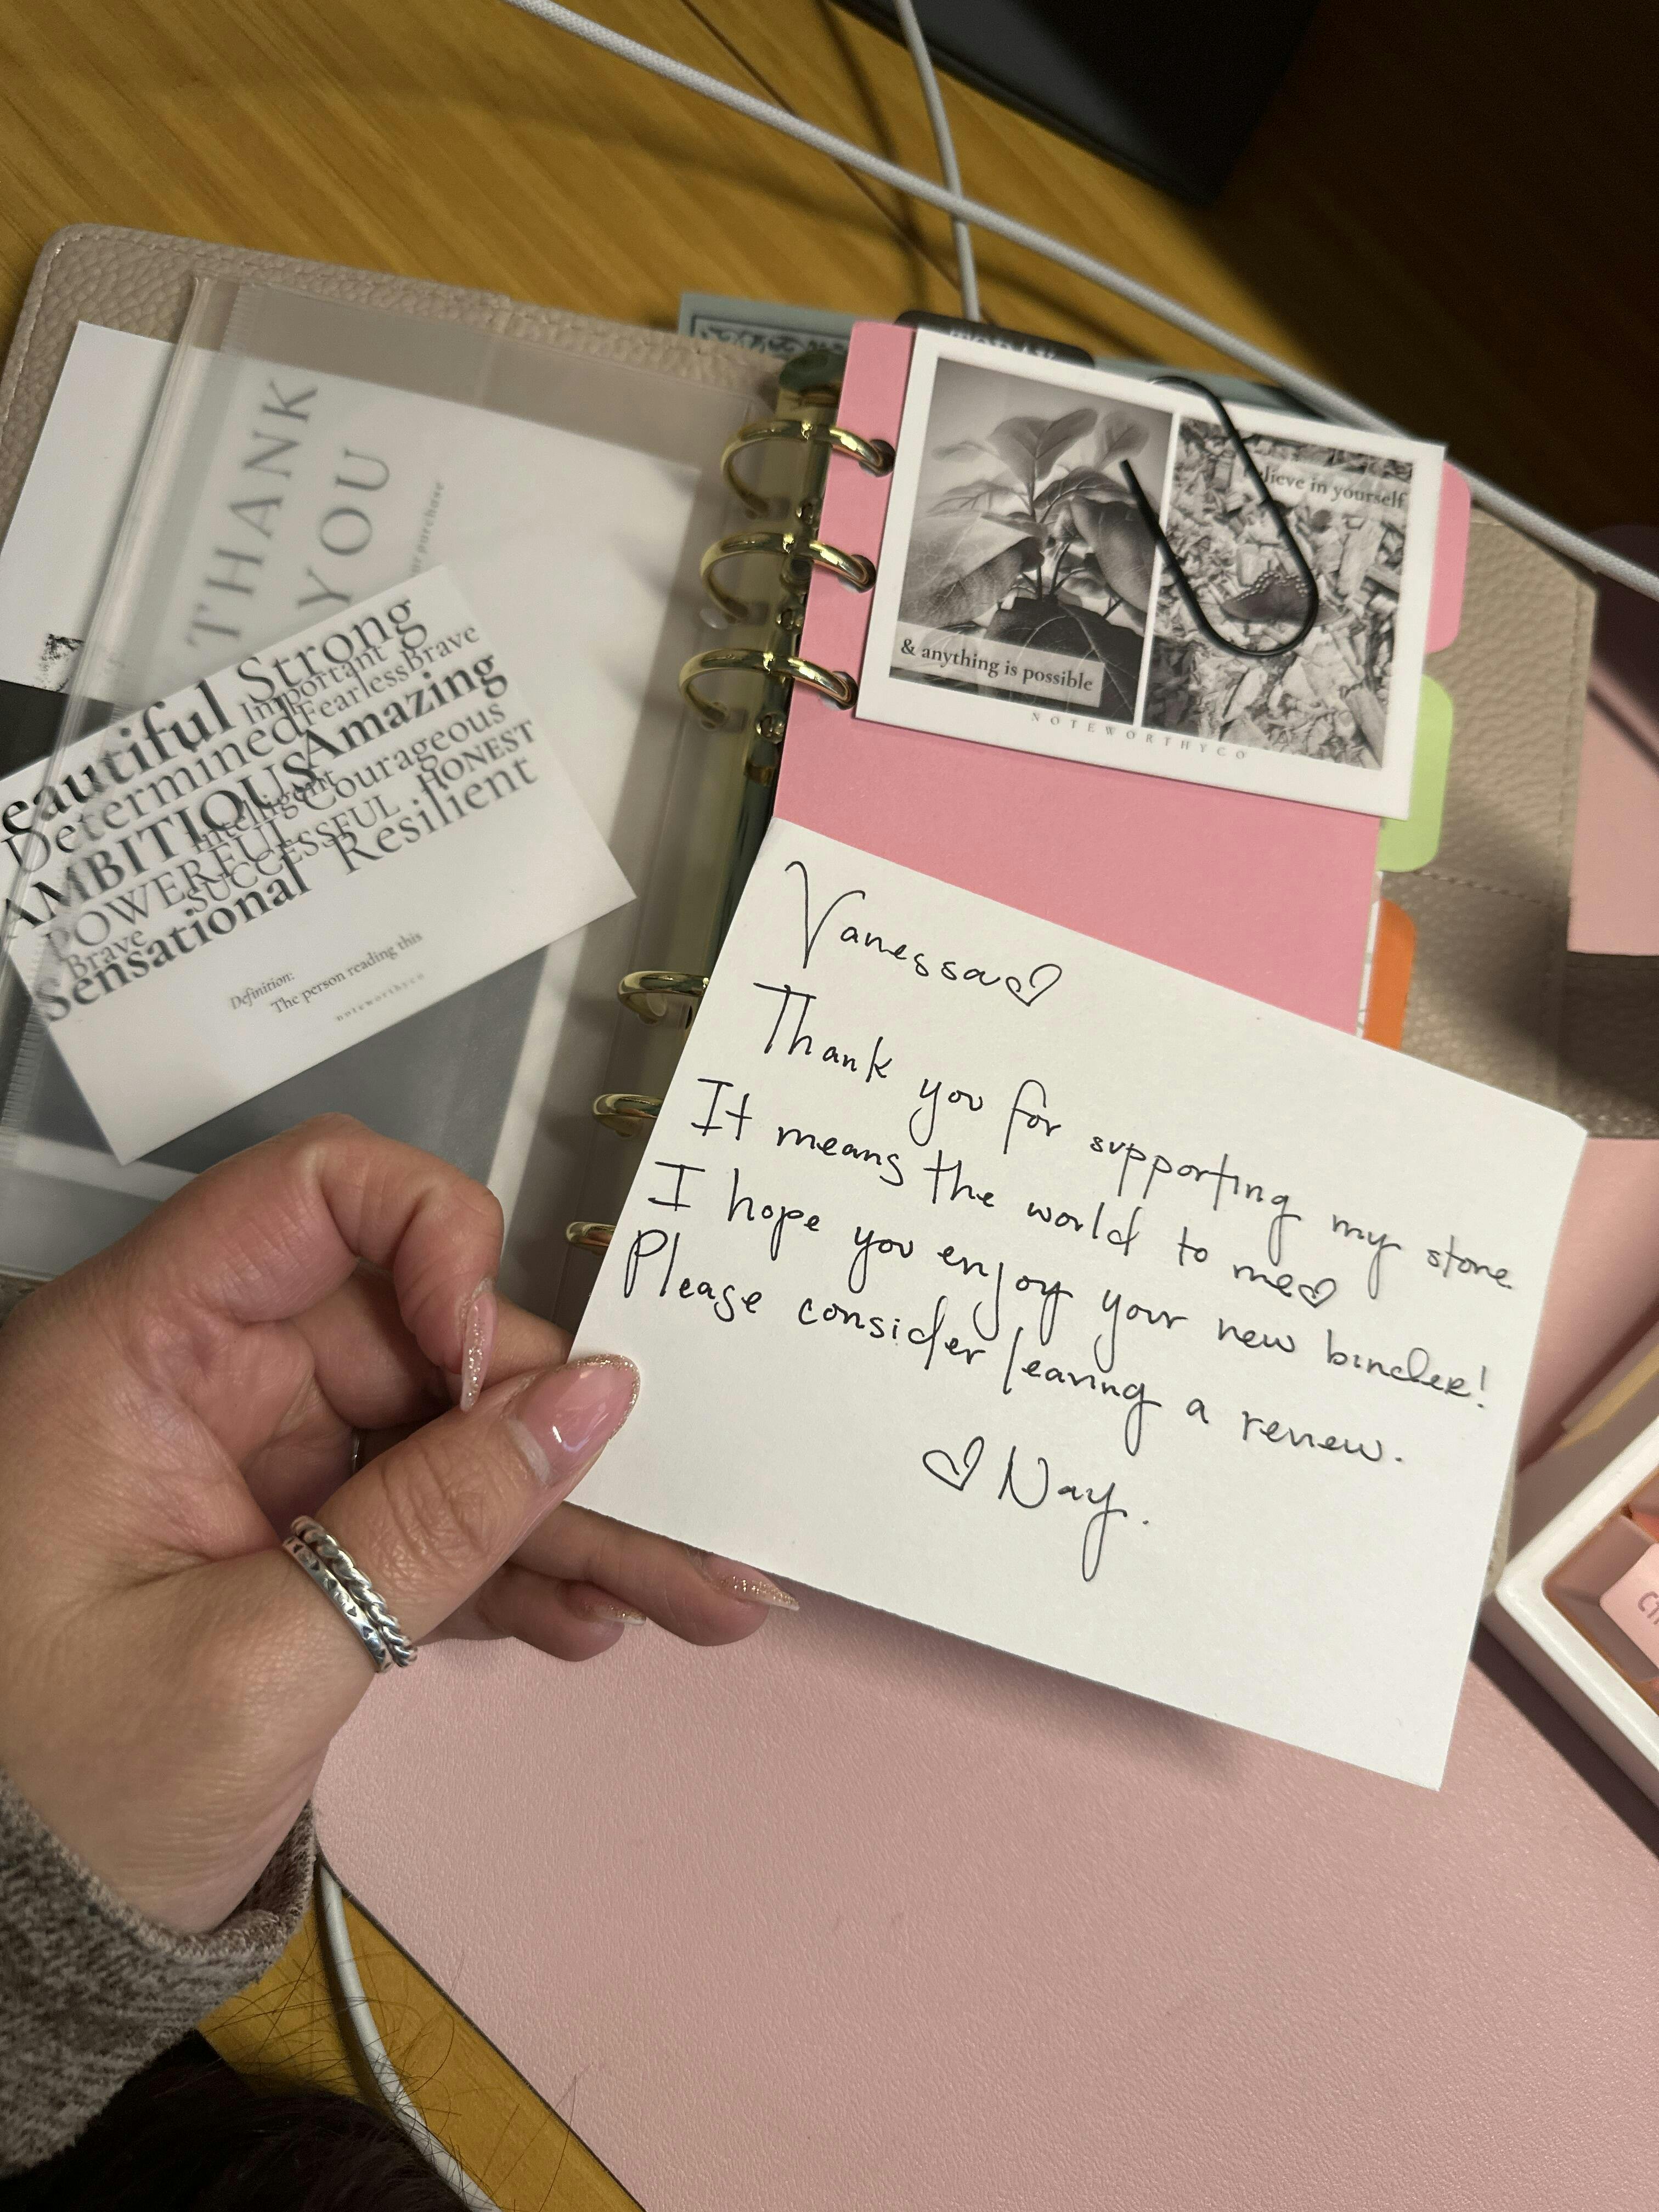 THANK
YOU
purchase
eautiful Strong
Important
Determined Fearless Brave
AMBITIOUS Amazing
Intelligent Courageous
POWERFUL HONEST
SUCCESSFUL Resilient
Brave
Sensational
Definition:
The person reading this
noteworthyco
lieve in yourself
& anything is possible
NOTEWORTHYCO
Vanessa♡
Thank you for supporting my store
It means the world to me♡
I hope you enjoy your new binder!
Please consider leaving a review.
♡ Nay.